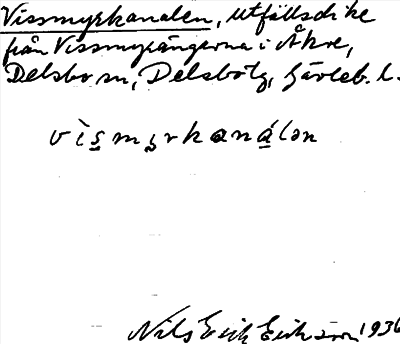 Vissmyrkanalen, utfallsdike
från Vissmyrängerna i Åkre,
Delsbo sn, Delsbo tg, Gävleb. l.
vìs̲myrkaná̲lən
Nils Erik Eriksson 1936